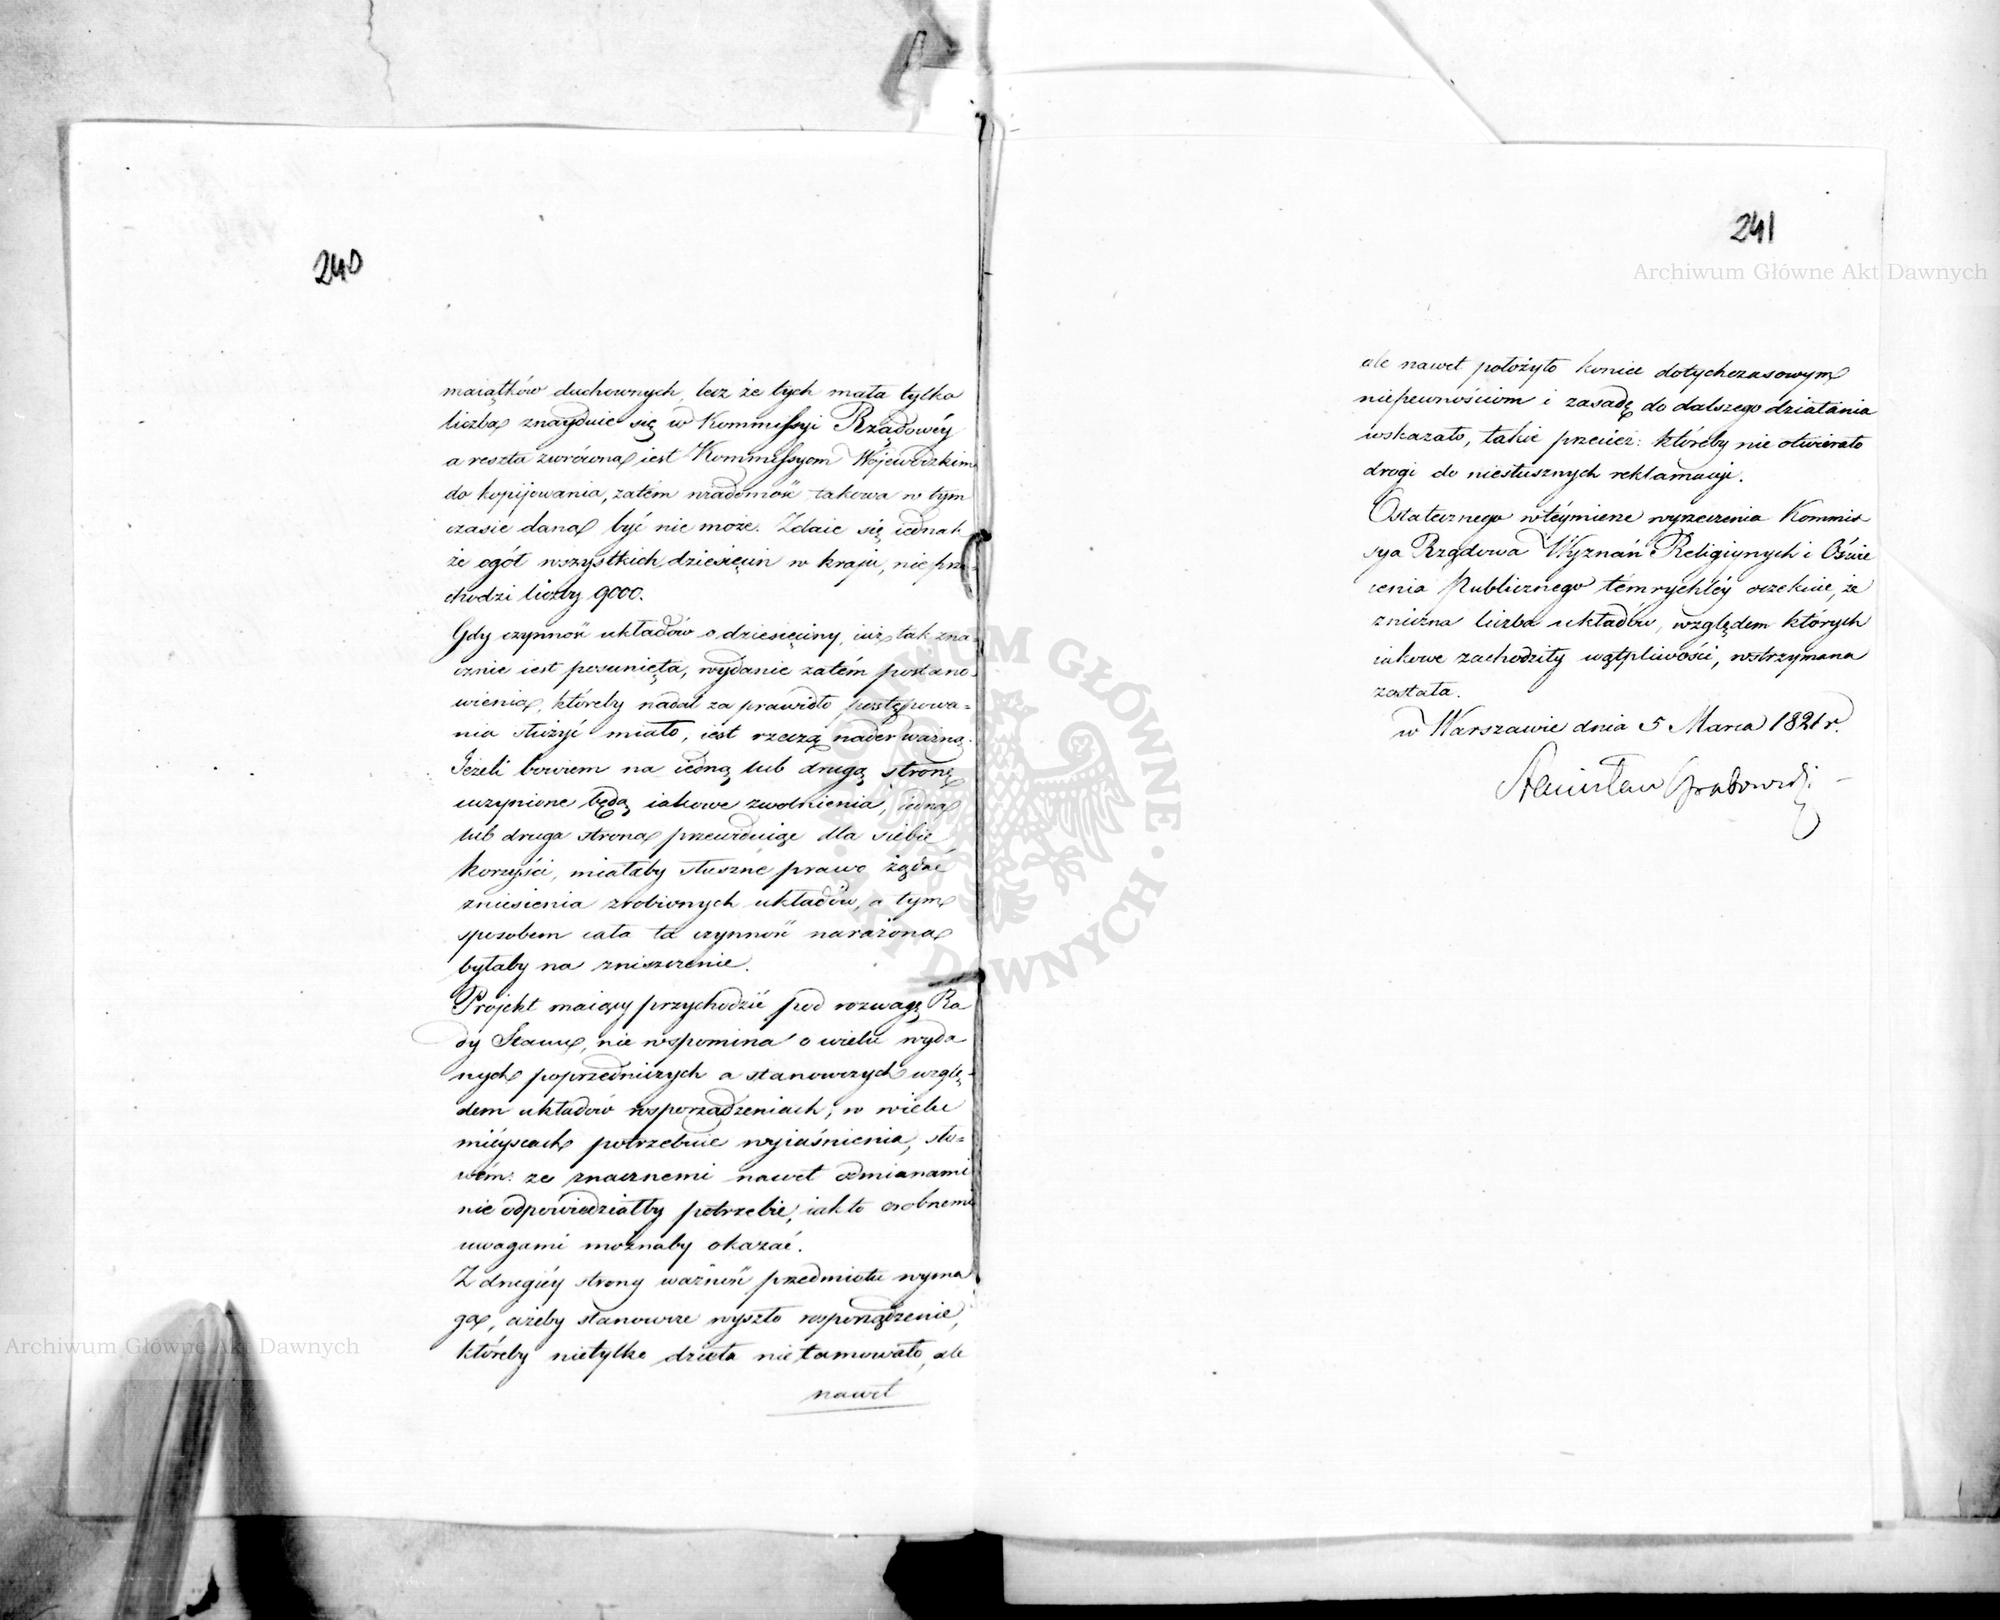 240
maiątków duchownych, lecz że tych mała tylko
liczba znayduie się w Kommissyi Rządowéy
a reszta zwrócona iest Kommissyom Wojewódzkim
do kopijowania, zatém wiadomość takowa w tym
czasie dana być nie może. Zdaie się iednak
że ogół wszystkich dziesięcin w kraju, nie prze-
chodzi liczby 9000.
Gdy czynność układów o dziesięciny, iuż tak zna-
cznie iest posunięta, wydanie zatém postano-
wienia, któreby nadal za prawidło postępowa-
nia służyć miało, iest rzeczą nader ważną.
Jeżeli bowiem na iedną lub drugą stronę
uczynione będą iakowe zwolnienia, iedna
lub druga strona przewiduiąc dla siebie
korzyści, miałaby słuszne prawo żądać
zniesienia zrobionych układów, a tym
sposobem cała ta czynność narażona
byłaby na zniszczenie.
Projekt maiący przychodzić pod rozwagę Ra-
dy Stanu, nie wspomina o wielu wyda
nych poprzedniczych a stanowczych wzglę-
dem układów rozporządzeniach, w wielu
mieyscach potrzebuie wyiaśnienia, sło-
wem: ze znacznemi nawet odmianami
nie odpowiedziałby potrzebie, iak to osobnemi
uwagami możnaby okazać.
Z drugiéy strony ważność przedmiotu wyma
ga, ażeby stanowcze wyszło rozporządzenie,
któreby nietylko dzieła nie tamowało, ale
nawet
241
ale nawet położyło koniec dotychczasowym
niepewnościom i zasadę do dalszego działania
wskazało, takie przecież: któreby nie otwierało
drogi do niesłusznych reklamacji.
Ostatecznego w téymierze wyrzeczenia Kommis
sya Rządowa Wyznań Religiynych i Oświe
cenia Publicznego tém rychléy oczekuie, że
znaczna liczba układów, względem których
iakowe zachodziły wątpliwości, wstrzymana
została.
w Warszawie dnia 5 Marca 1821 r.
Stanisław Grabowski
Archiwum Główne Akt Dawnych
Archiwum Główne Akt Dawnych
ARCHIWUM GŁÓWNE AKT DAWNYCH